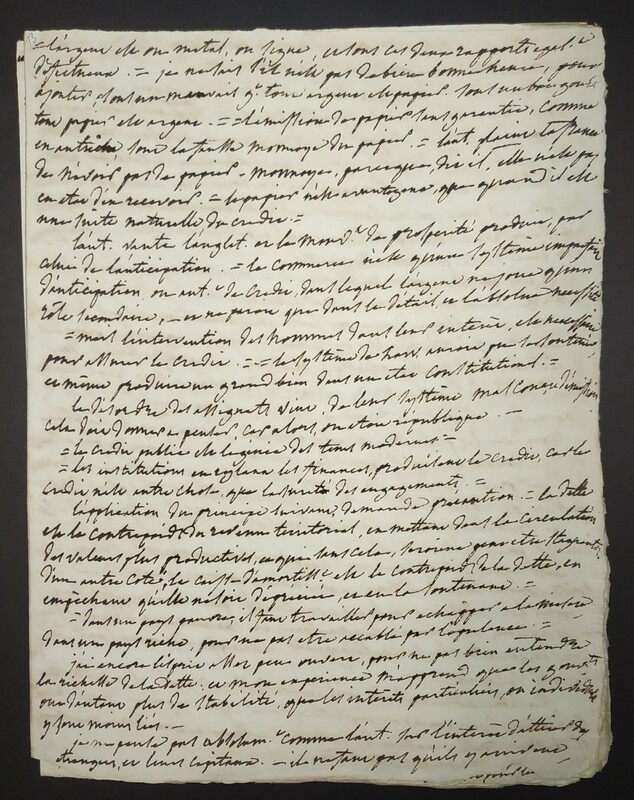 = l'argent est ou métal, ou signe, et sous ces deux rapports égal.t
défectueux. = je ne sais s'il n'est pas de bien bonne heure, pour
ajouter, sous un mauvais g.t tout argent est papier. sous un bon gouv.t
tout papier est argent. = = l'émission de papier sans garantie, comme
en autriche sont la fausse monnoye du papier. = l'aut. plaint la france
de n'avoir pas de papier-monnoye, parceque, dit il, elle n'est pas
en état d'en recevoir. = le papier n'est avantageux, que quand il est
une suite naturelle du crédit. =
l'aut. vante l'anglet. et le mouv.t de prospérité produit, par
celui de l'anticipation. = le commerce n'est qu'un système
d'anticipation, ou aut.t de crédit, dans lequel l'argent ne joue qu'un
rôle secondaire, — et ne paroit que dans le détail, et l'absolue nécessité
= mais l'intervention des hommes dans leur intérêt, est nécessaire
pour assurer le crédit. = = le système de law, auroit pu se soutenir
et même produire un grand bien dans un état constitutionel. =
le désordre des assignats vint, de leur système mal conçu d'émission
cela doit donner à penser, car alors, on étoit république. —
= le crédit public est le génie des tems modernes =
= les institutions en réglant les finances, produisent le crédit, car le
crédit n'est autre chose, que la sureté des engagements. =
l'application du principe suivant, demande précaution. = la dette
est le contrepoids du revenu territorial, en mettant dans la circulation
des valeurs plus productives, et que sans cela, seroient peut être stagnantes
d'un autre coté, le caisse d'amortiss.t est le contrepoids de la dette, en
empêchant qu'elle ne soit dépréciée, et en la soutenant. =
= dans un pays pauvre, il faut travailler pour echapper a la misère
dans un pays riche, pour ne pas etre accablé par l'opulence. =
j'ai encore l'esprit assez peu ouvert, pour ne pas bien entendre
la richesse de la dette. et mon expérience m'apprend que les gouv.ts
ont d'autant plus de stabilité, que les intérêts particuliers, ou individuels
y sont moins liés. —
je ne pense pas absolum.t comme l'aut. sur l'intérêt d'attirer des
étrangers, et leurs capitaux. — il ne faut pas qu'ils y arrivent